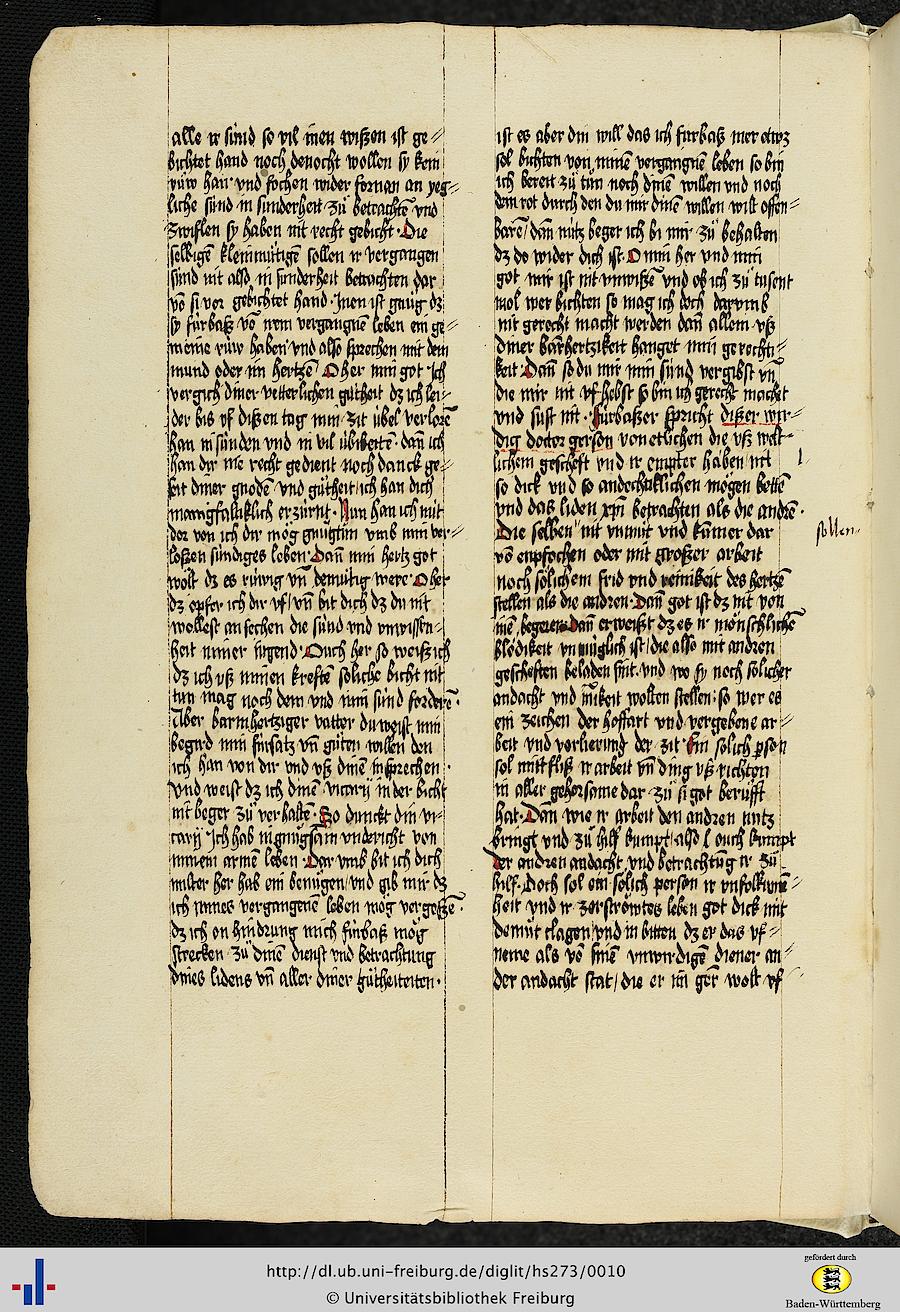 alle ir sünd so vil inen wißen ist ge=
bichtet hand noch denocht wollen sy kein
rüw han vnd fochen wider fornan an yeg=
liche sünd in sunderheit zů betrachtē vnd
zwiflen sy haben nit recht gebicht · Die
selbigē kleinmütigē sollen ir vergangen
sünd nit also in sunderheit betrachten dar
vō si vor gebichtet hand · Inen ist gnůg dz
sy fürbaß vō irem vergangnē leben ein ge=
meine rüw haben vnd also sprechen mit dem
mund oder im hertzē · O her min got ich
vergich diner vetterlichen gütheit dz ich lei=
der bis vf dißen tag min zit übel verlorē
han in sünden vnd in vil üblichtē · dan ich
han dir nie recht gedient noch danck ge=
seit diner gnodē vnd gütheit / ich han dich
manigfaltiklich erzürnt · Nun han ich nüt
dor von ich dir mög gnůgtůn vmb min ver=
loßen sündiges leben · Dan̄ min hertz got
wolt dz es rüwig vn̄ demütig were · O her
dz opfer ich dir vf / vn̄ bit dich dz du nit
wollest ansechen die sünd vnd vnwissen=
heit miner iugend · Ouch her so weiß ich
dz ich vß minen kreftē soliche bicht nit
tun mag noch dem vnd min sünd forderē ·
Aber barmhertziger vatter du weist min
begird min fürsatz vn̄ gůten willen den
ich han von dir vnd vß dinē insprechen ·
Vnd weist dz ich dinē vicarij in der bicht
nit beger zů verhaltē · So dunckt din vi=
carij ich hab in gnůgsam vndericht von
minem armē leben · Dar vmb bit ich dich
milter her hab ein benügen / vnd gib mir dz
ich mines vergangenē leben mög vergeßē ·
dz ich on hindrung mich fürbaß mög
strecken zů dinē dienst vnd betrachtung
dines lidens vn̄ aller diner gůtheiteiten ·
ist es aber din will das ich fürbaß mer etwz
sol bichten von minē vergangnē leben so bin
ich bereit zů tůn noch dinē willen vnd noch
dem rot durch den du mir dinē willen wilt offen=
barē / dan̄ nütz beger ich bi mir zů behalten
dz do wider dich ist · O min her vnd min
got mir ist nit vnwißē vnd ob ich zů tusent
mol wer bichten so mag ich doch darvmb
nit gerecht macht werden dan̄ allein vß
diner barmhertzikeit hanget min gerechti=
keit · Dan̄ so du mir min sünd vergibst vn̄
die mir nit vf hebst so bin ich gerecht machet
vnd sust nit · Fürbaßer spricht dißer wir=
dig doctor gerson von etlichen die vß welt=
lichem gescheft vnd ir empter haben nit
so dick vnd so andechtiklichen mögen bettē
vnd das liden xp̄i betrachten als die andrē ·
Die selben nit vnmüt vnd kumer dar
sollen
vō enpfochen oder mit großer arbeit
noch sölichem frid vnd reinikeit des hertzē
stellen als die andren · Dan̄ got ist dz nit von
inē begeren Dan̄ er weißt dz es ir mönschlichē
blödikeit vnmüglich ist / die also mit andren
gescheften beladen sint · vnd wo sy noch solicher
andacht vnd inikeit wolten stellen · so wer es
ein zeichen der hoffart vnd vergebene ar=
beit vnd verlierung der zit · Ein solich pson
sol mitt fliß ir arbeit vn̄ ding vß richten
in aller gehorsame dar zů si got berüfft
hat · Dan̄ wie ir arbeit den andren nutz
bringt vnd zů hilf kumpt / also ouch kumpt
der andren andacht / vnd betrachtūg ir zů
hilf · Doch sol ein solich person ir vnfolkumē=
heit vnd ir zerströwtes leben got dick mit
demůt clagen / vnd in bitten dz er das vf=
neme als vō sinē vnwirdigē diener an=
der andacht stat / die er im gēr wolt vf
http://dl.ub.uni-freiburg.de/diglit/hs273/0010
© Universitätsbibliothek Freiburg
gefördert durch
Baden-Württemberg